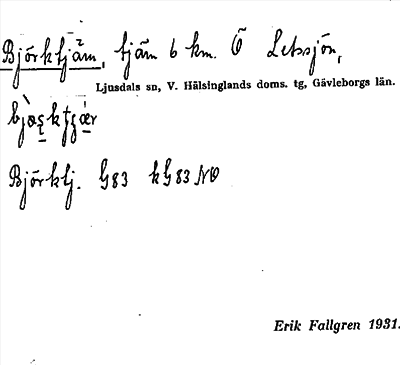 Björktjärn, tjärn 6 km. Ö Letssjön,
Ljusdals sn, V. Hälsinglands doms. tg, Gävleborgs län.
Björktj. G83 kG83 NO
Erik Fallgren 1931.